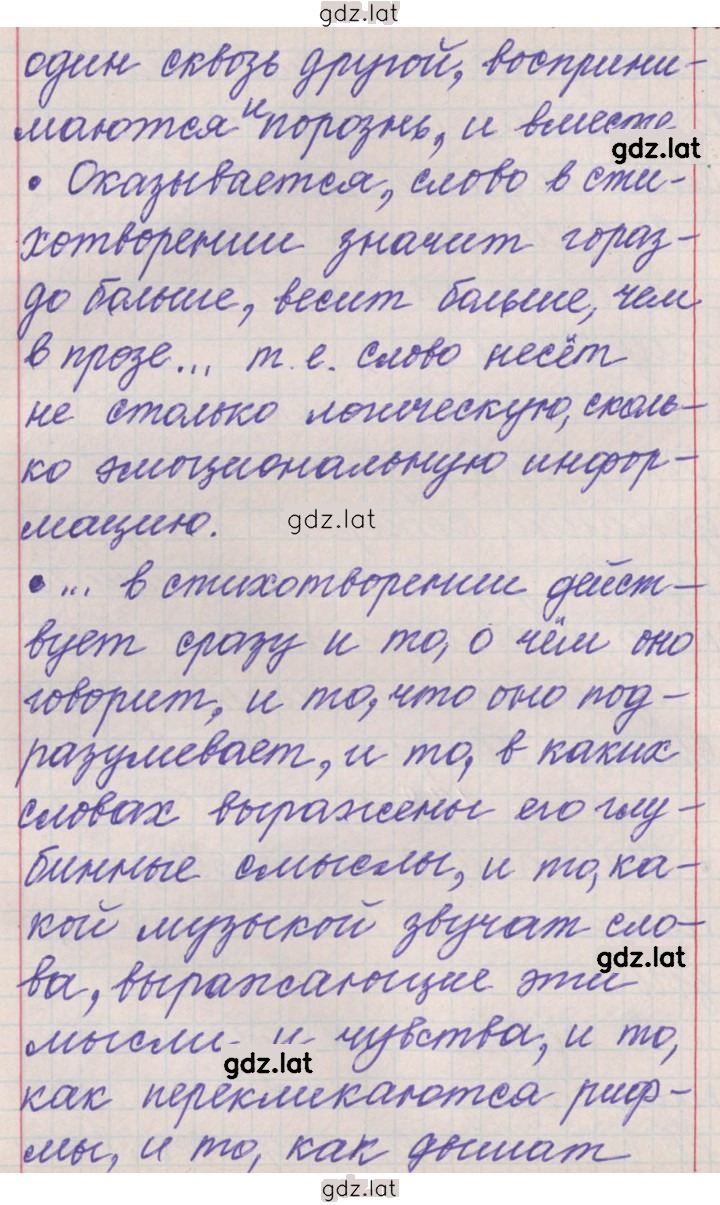 gdz.lat
один сквозь другой, восприни-
маются и порознь, и вместе
gdz.lat
• Оказывается, слово в сти-
хотворении значит гораз-
до больше, весит больше, чем
в прозе... т. е. слово несёт
не столько логическую, сколь-
ко эмоциональную инфор-
мацию.
gdz.lat
• ... в стихотворении дейст-
вует сразу и то, о чём оно
говорит, и то, что оно под-
разумевает, и то, в каких
словах выражены его глу-
бинные смыслы, и то, ка-
кой музыкой звучат сло-
gdz.lat
ва, выражающие эти
мысли и чувства, и то,
gdz.lat
как перекликаются риф-
мы, и то, как дышат
gdz.lat